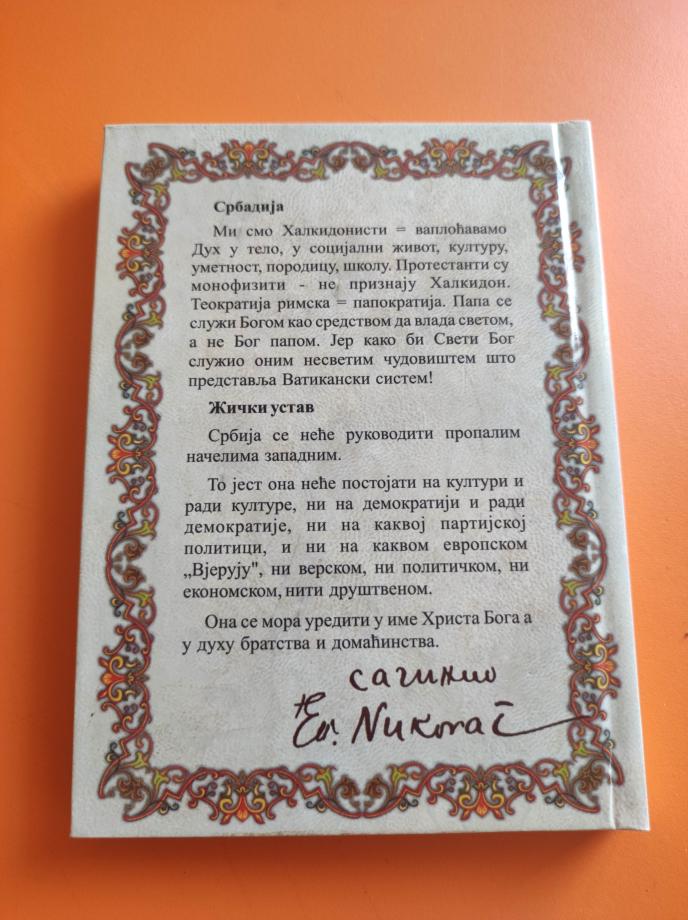 Србадија
Ми смо Халкидонисти = ваплоћавамо
Дух у тело, у социјални живот, културу,
уметност, породицу, школу. Протестанти су
монофизити - не признају Халкидон.
Теократија римска = папократија. Папа се
служи Богом као средством да влада светом,
а не Бог папом. Јер како би Свети Бог
служио оним несветим чудовиштем што
представља Ватикански систем!
Жички устав
Србија се неће руководити пропалим
начелима западним.
То јест она неће постојати на култури и
ради културе, ни на демократији и ради
демократије, ни на каквој партијској
политици, и ни на каквом европском
„Вјерују", ни верском, ни политичком, ни
економском, нити друштвеном.
Она се мора уредити у име Христа Бога а
у духу братства и домаћинства.
сачинио
Еп. Николај